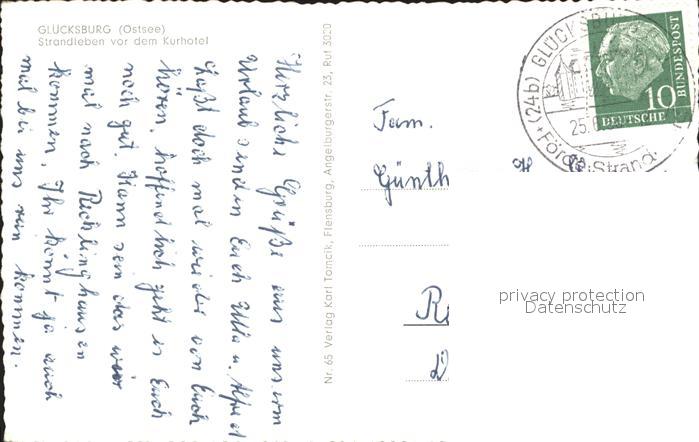 GLÜCKSBURG (Ostsee)
Strandleben vor dem Kurhotel
Herzliche Grüße aus unserm
Urlaub senden Euch Ulla u. Alfred
Laßt doch mal wieder von Euch
hören, hoffentlich geht es Euch
noch gut. Kann sein das wir
mal nach Recklinghausen
kommen, Ihr könnt ja auch
mal bei uns rein kommen.
Nr. 65 Verlag Karl Tomcik, Flensburg, Angelburgerstr. 23, Ruf 3020
Fam.
Günth
(24b) GLÜCKSBURG
25.
Förde-Strand
10
DEUTSCHE
BUNDESPOST
privacy protection
Datenschutz